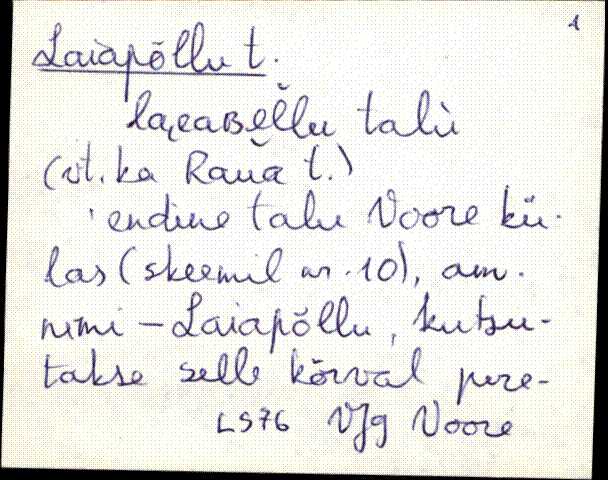 1
Laiapõllu t.
talù
(vt. ka Raua t.)
endine talu Voore kü-
las (skeemil nr. 10), am.
nimi – Laiapõllu, kutsu-
takse selle kõrval pere-
LS76 VJg Voore